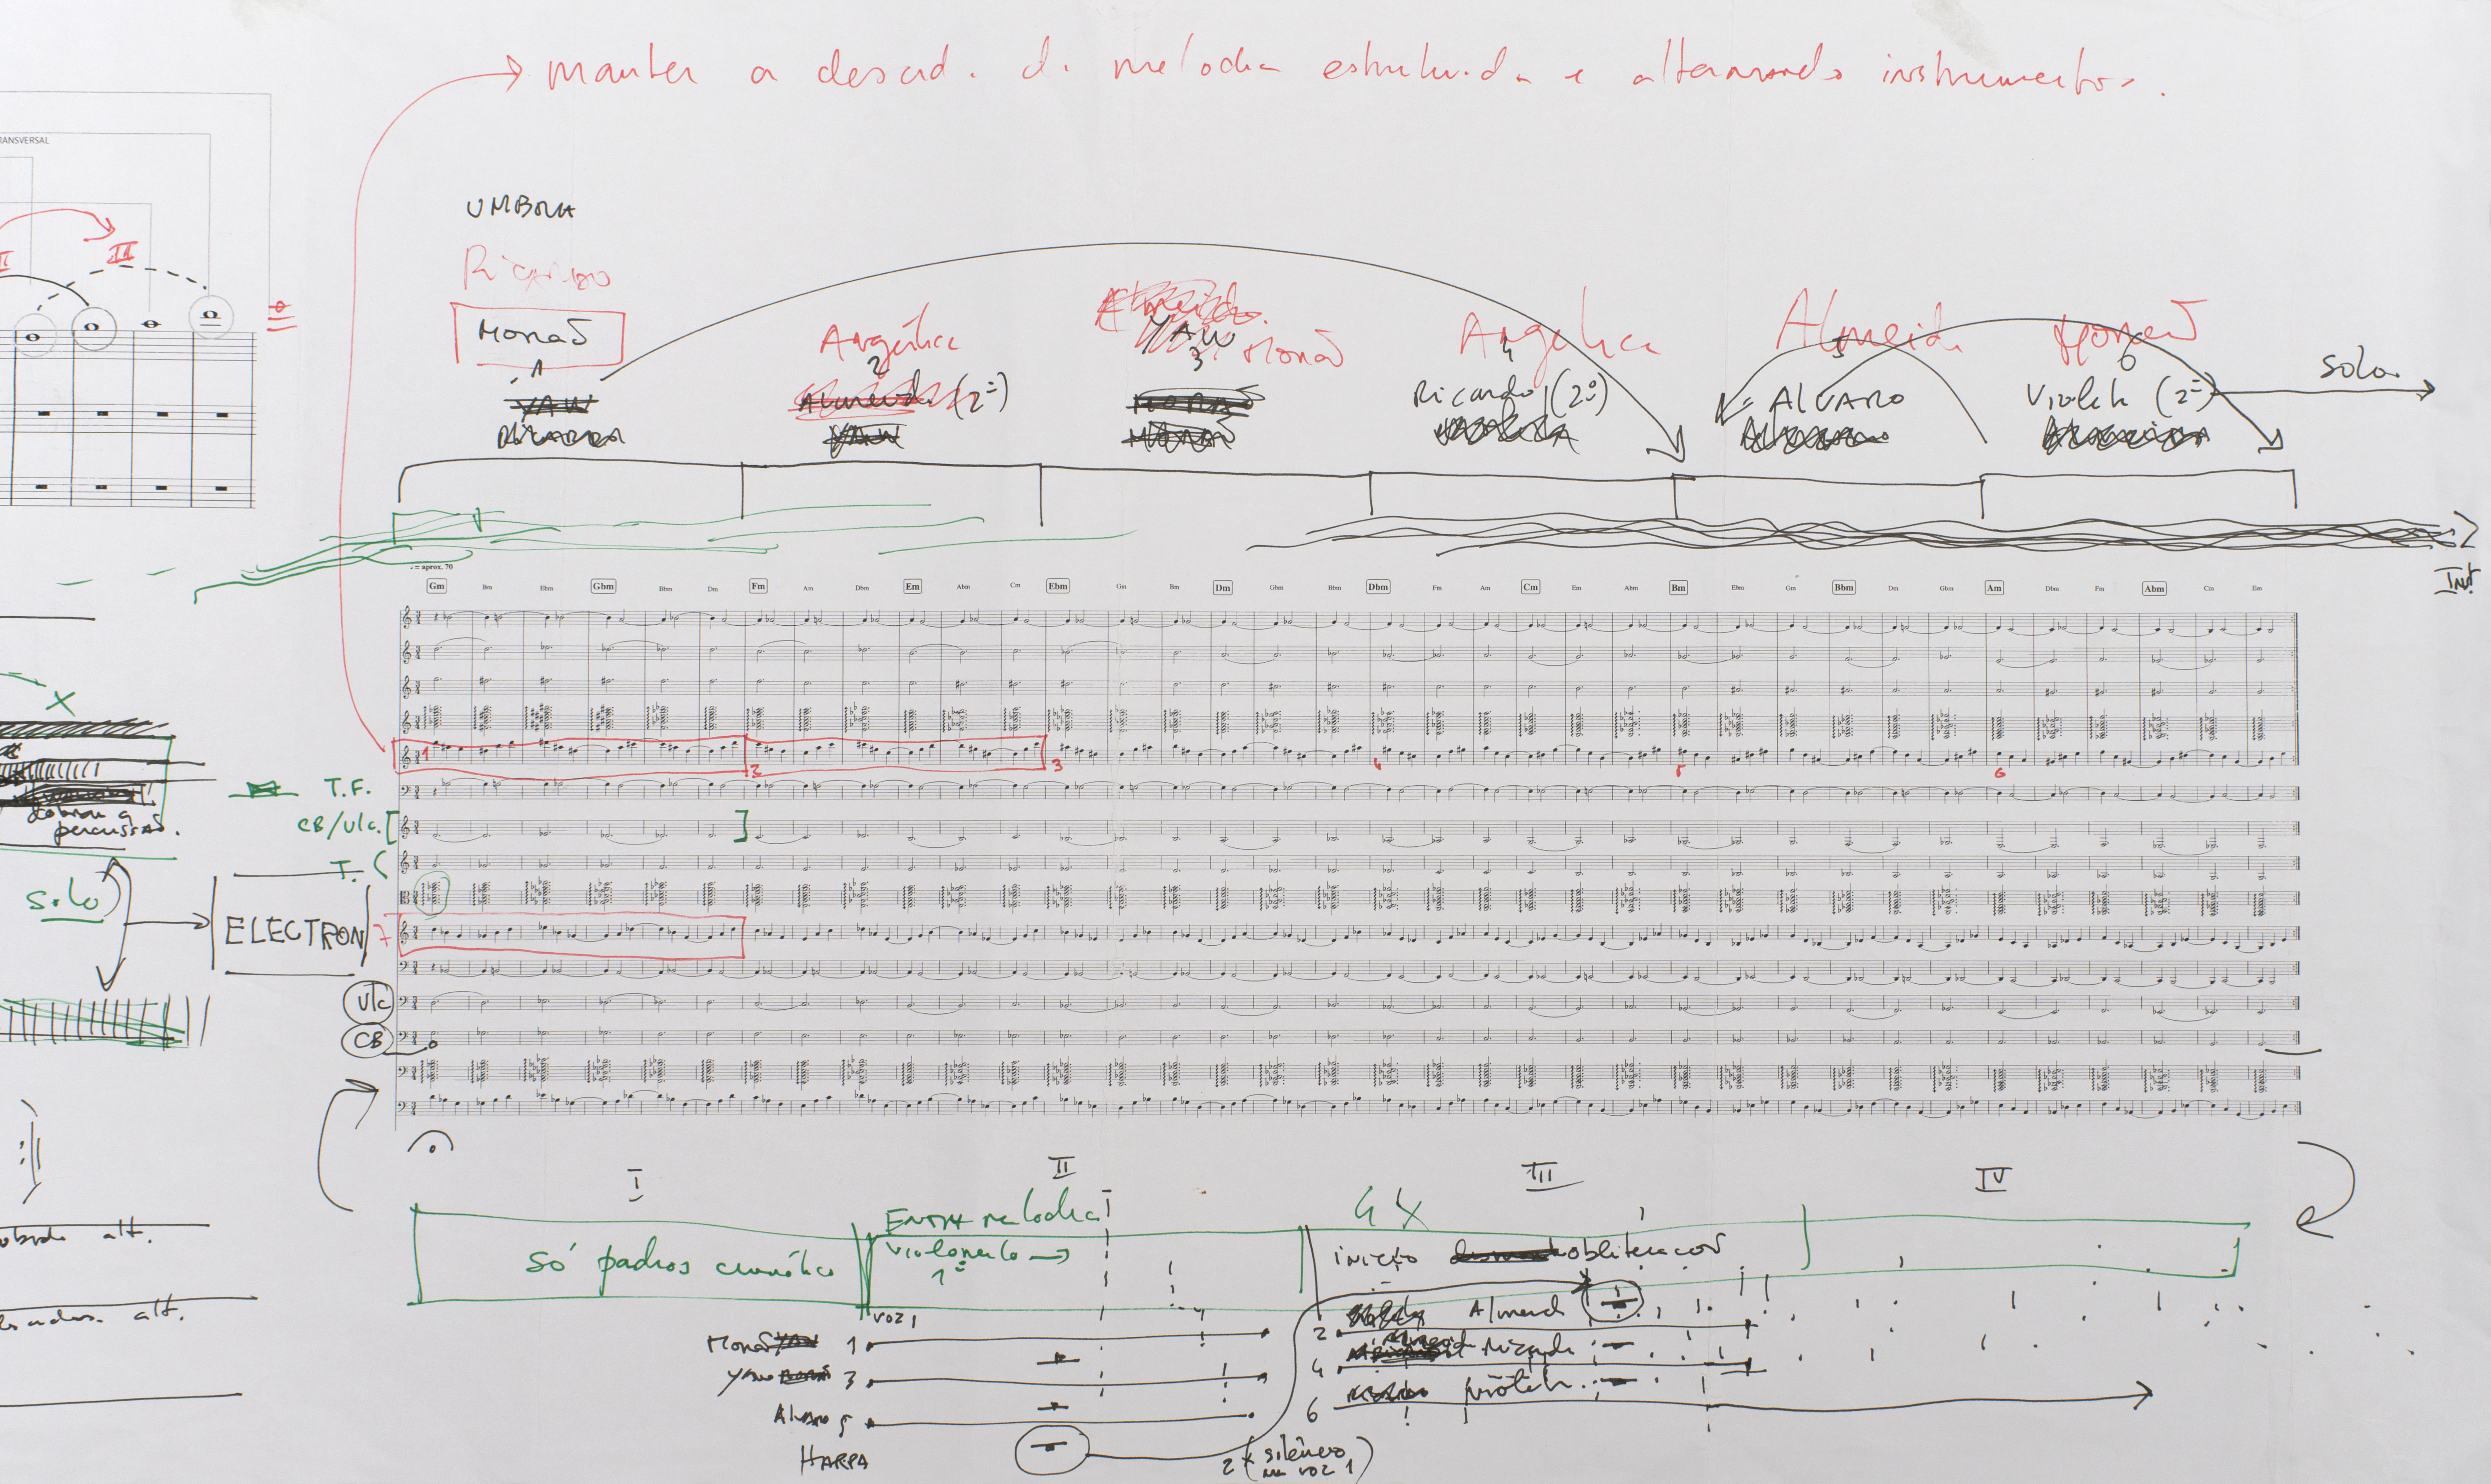 manter a descid. d. melodia estruturada e alternando instrumentos.
RANSVERSAL
III
UMBRIA
Ricardo
Monaõ
Angélica
YAW
Monaõ
Angelica
Almeida
1
2
3
4
5
6
YAW
Almeida (2º)
Ricardo (2º)
ALVARO
Violeta (2º)
solo
RICARDO
YAW
Int
= aprox. 70
Gm Bm Ebm Gbm Bbm Dm Fm Am Dbm Em Abm Cm Ebm Gm Bm Dm Gbm Bbm Dbm Fm Am Cm Em Abm Bm Ebm Gm Bbm Dm Gbm Am Dbm Fm Abm Cm Em
X
1 2 3 4 5 6
T.F.
CB/Vlc.
dobram a
percussão.
T.
solo
ELECTRON
7
Vlc
CB
I
II
III
IV
Entra melodia
4X
Só padros cromático
violoncelo →
1º
início obliteracor
alt.
alt.
voz 1
Monaõ YAW 1
YAW 3
Alvaro 5
HARPA
2 Almeid
4 Ricardo
6 Violeta
2x (silêncio
na voz 1)